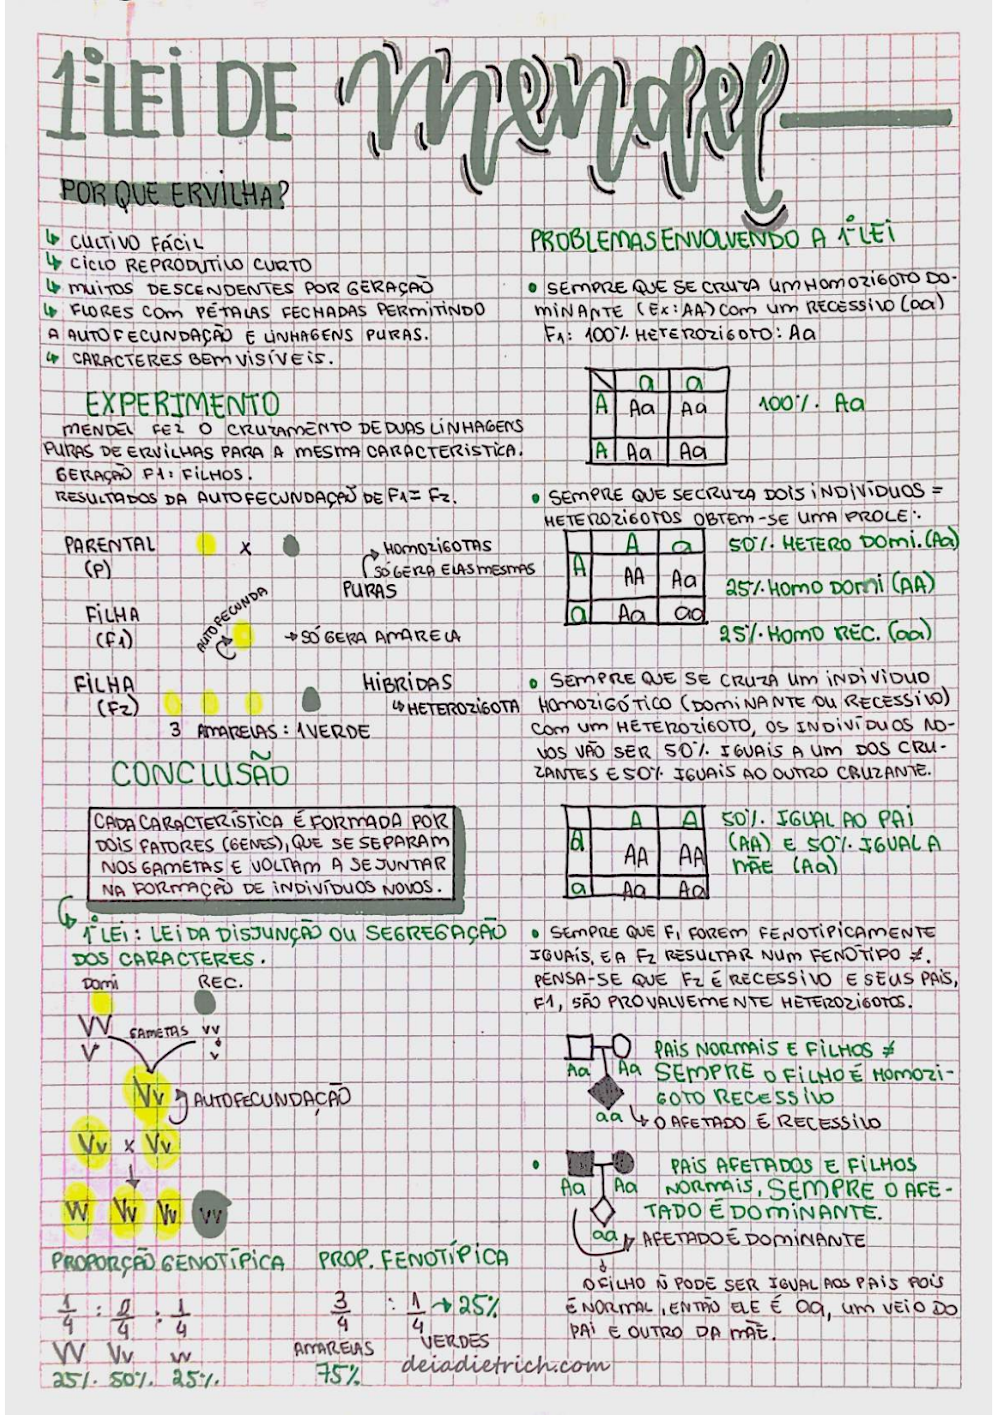 1ª LEI DE mendel
POR QUE ERVILHA?
↳ CULTIVO FÁCIL
↳ CICLO REPRODUTIVO CURTO
↳ MUITOS DESCENDENTES POR GERAÇÃO
↳ FLORES COM PÉTALAS FECHADAS PERMITINDO
A AUTOFECUNDAÇÃO E LINHAGENS PURAS.
↳ CARACTERES BEM VISÍVEIS.
EXPERIMENTO
MENDEL FEZ O CRUZAMENTO DE DUAS LINHAGENS
PURAS DE ERVILHAS PARA A MESMA CARACTERISTICA.
GERAÇÃO F1: FILHOS.
RESULTADOS DA AUTOFECUNDAÇÃO DE F1 = F2.
PARENTAL x → HOMOZIGOTAS
(P) SÓ GERA ELAS MESMAS
PURAS
FILHA AUTOFECUNDA
(F1) → SÓ GERA AMARELA
FILHA HIBRIDAS
(F2) ↳ HETEROZIGOTA
3 AMARELAS : 1 VERDE
CONCLUSÃO
CADA CARACTERÍSTICA É FORMADA POR
DOIS FATORES (GENES), QUE SE SEPARAM
NOS GAMETAS E VOLTAM A SE JUNTAR
NA FORMAÇÃO DE INDIVÍDUOS NOVOS.
1ª LEI: LEI DA DISJUNÇÃO OU SEGREGAÇÃO
DOS CARACTERES.
DOMI REC.
VV GAMETAS vv
V v
Vv AUTOFECUNDAÇÃO
Vv x Vv
VV Vv Vv vv
PROPORÇÃO GENOTÍPICA
1/4 : 2/4 : 1/4
VV Vv vv
25% 50% 25%
PROP. FENOTÍPICA
3/4 : 1/4 → 25%
AMARELAS VERDES
75%
PROBLEMAS ENVOLVENDO A 1ª LEI
• SEMPRE QUE SE CRUZA UM HOMOZIGOTO DO-
MINANTE (EX: AA) COM UM RECESSIVO (aa)
F1: 100% HETEROZIGOTO: Aa
a a
A Aa Aa 100% Aa
A Aa Aa
• SEMPRE QUE SE CRUZA DOIS INDIVÍDUOS =
HETEROZIGOTOS OBTEM-SE UMA PROLE:
A a 50% HETERO DOMI. (Aa)
A AA Aa 25% HOMO DOMI (AA)
a Aa aa 25% HOMO REC. (aa)
• SEMPRE QUE SE CRUZA UM INDIVÍDUO
HOMOZIGÓTICO (DOMINANTE OU RECESSIVO)
COM UM HETEROZIGOTO, OS INDIVÍDUOS NO-
VOS VÃO SER 50% IGUAIS A UM DOS CRU-
ZANTES E 50% IGUAIS AO OUTRO CRUZANTE.
A A 50% IGUAL AO PAI
AA AA (AA) E 50% IGUAL A
a Aa Aa MÃE (Aa)
• SEMPRE QUE F1 FOREM FENOTIPICAMENTE
IGUAIS, E A F2 RESULTAR NUM FENÓTIPO ≠.
PENSA-SE QUE F2 É RECESSIVO E SEUS PAIS,
F1, SÃO PROVALVEMENTE HETEROZIGOTOS.
PAIS NORMAIS E FILHOS ≠
Aa Aa SEMPRE O FILHO É HOMOZI-
GOTO RECESSIVO
aa ↳ O AFETADO É RECESSIVO
• PAIS AFETADOS E FILHOS
Aa Aa NORMAIS, SEMPRE O AFE-
TADO É DOMINANTE.
aa AFETADO É DOMINANTE
O FILHO Ñ PODE SER IGUAL AOS PAIS POIS
É NORMAL, ENTÃO ELE É aa, UM VEIO DO
PAI E OUTRO DA MÃE.
deiadietrich.com